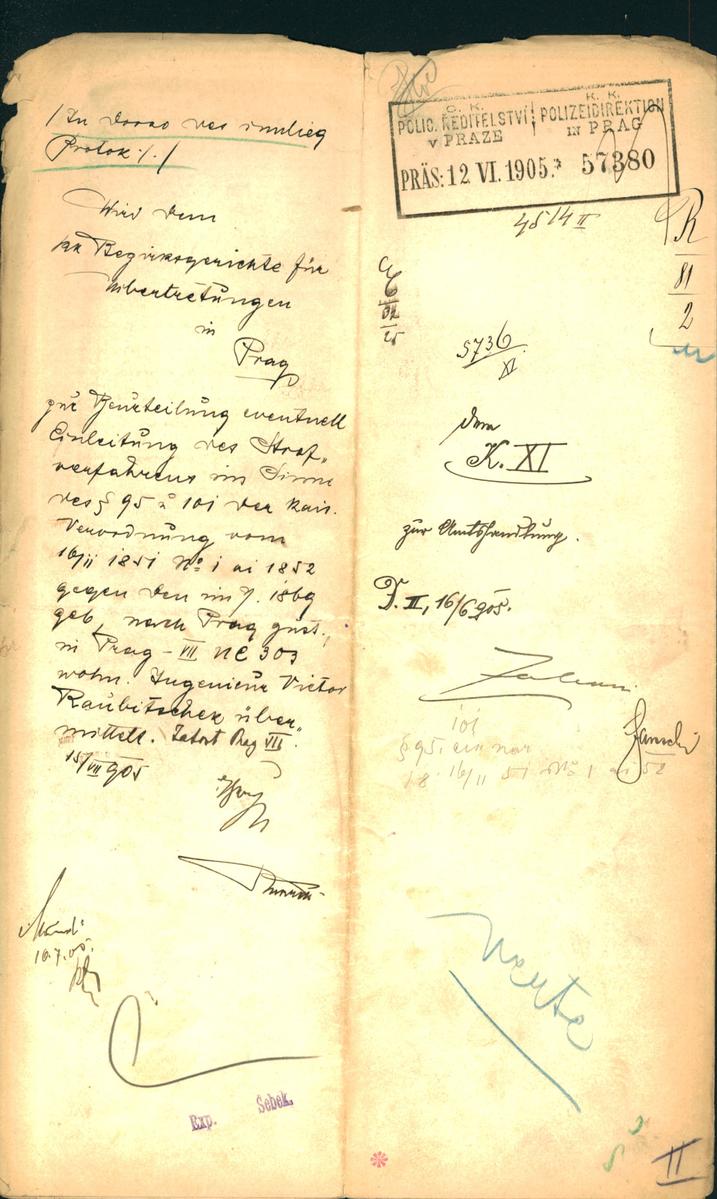 /In dorso des inulieg
Protok:/./
Wird dem
kk Bezirksgerichte für
Übertretungen
in
Prag
zur Beurteilung eventuell
Einleitung des Straf„
verfahrens im Sinne
des § 95 u 101 der kais.
Verordnung vom
16/II 1851 No 1 ai 1852
gegen den im J. 1869
geb., nach Prag zust.,
in Prag - VII NC 303
wohn. Ingenieur Victor
Raubitschek über„
mittelt. Tatort Prag VII.
15/VII 905
Mundi
16.7.05.
Exp. Šebek.
C. K. K. K.
POLIC. ŘEDITELSTVÍ POLIZEIDIREKTION
V PRAZE IN PRAG
PRÄS: 12 VI. 1905.* 57380
4514 II
R
81
2
5736
XI
dem
K. XI
zur Amtshandlung.
D. II, 16/6 905.
101
§ 95.
16/II 51 No 1 ai 52
Janschi
II